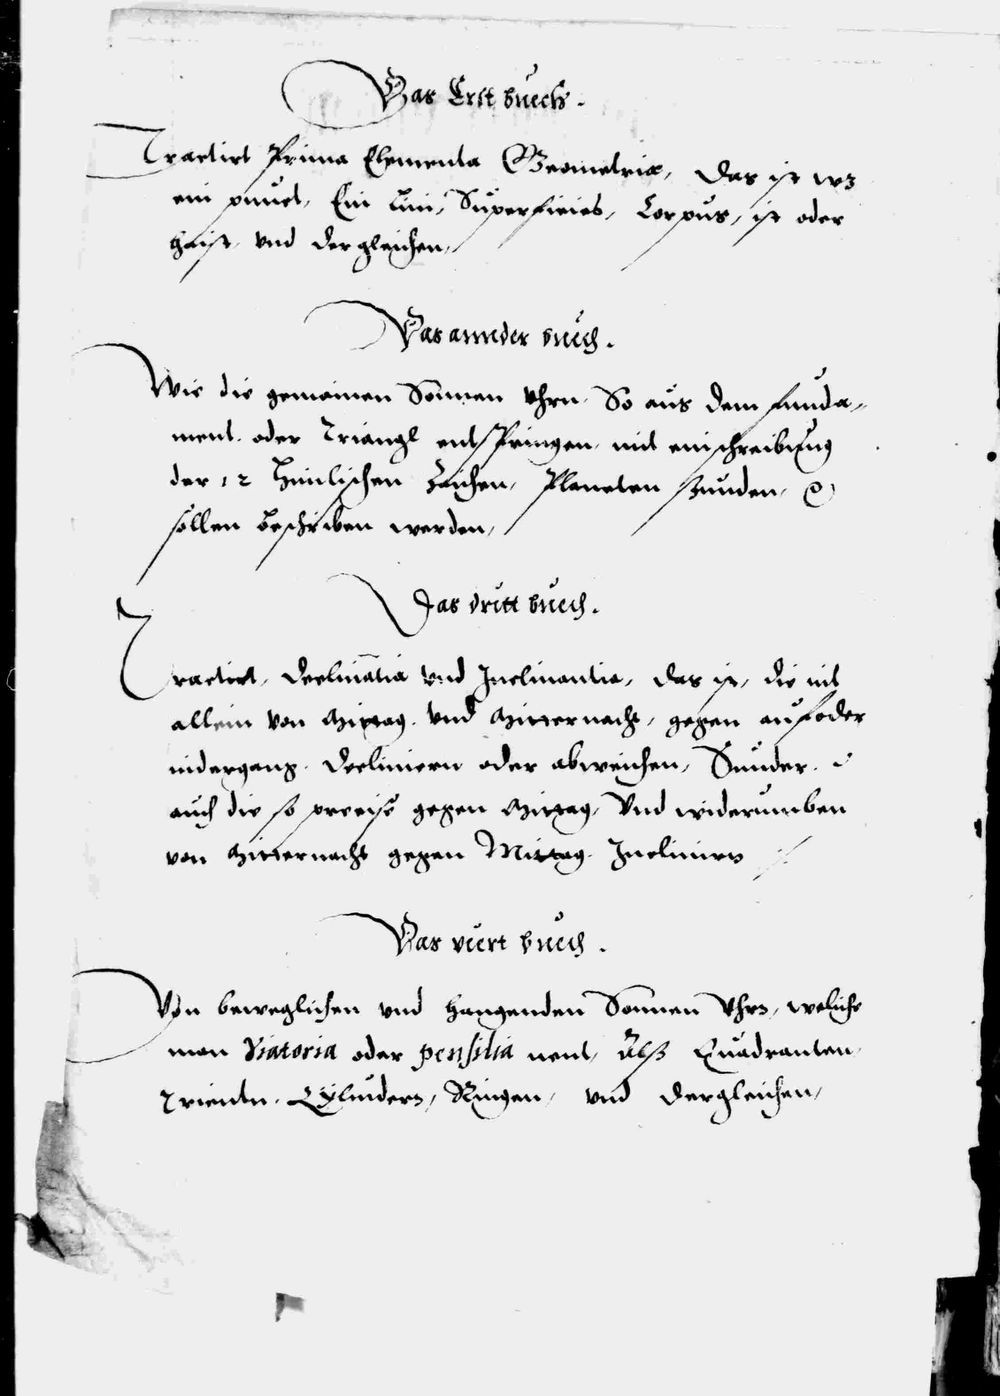 Das Erst buech.
Tractirt Prima Elementa Geometriæ, das ist wz
ein punct, Ein Lini, Superficies, Corpus, ist oder
haist, vnd dergleichen,
Das annder buech.
Wie die gemainen Sonnen Vhrn, So aus dem funda-
ment oder Triangl entspringen, mit einschreibung
der 12 Himlischen Zaichen, Planeten stunden, &
sollen beschriben werden,
Das dritt buech.
Tractirt, declinantia vnd Inclinantia, das ist, die nit
allein von Mittag vnd Mitternacht, gegen auf oder
nidergang declinieren oder abweichen, Sunder
auch die so preciss gegen Mittag, Vnd widerumben
von Mitternacht gegen Mittag Inclinirn
Das viert buech.
Von beweglichen vnd hangenden Sonnen Vhrn, weliche
man Viatoria oder pensilia nent, Alß Quadranten,
Trientn, Cylindern, Ringen, vnd dergleichen,